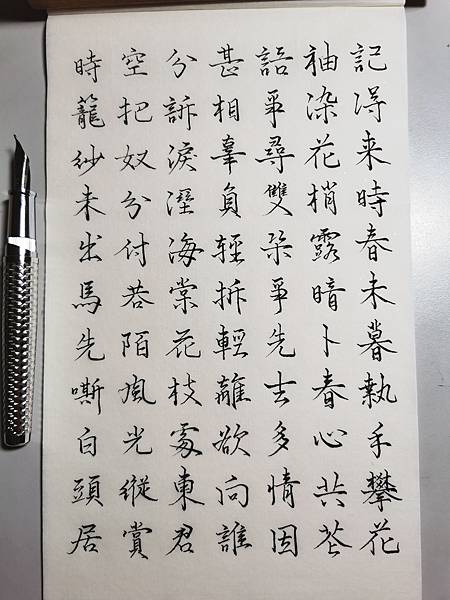 記得来時春未暮執手攀花
袖染花梢露暗卜春心共花
語爭尋雙朵爭先去多情因
甚相辜負輕拆輕離欲向誰
分訴淚溼海棠花枝處東君
空把奴分付巷陌風光縱賞
時籠紗未出馬先嘶白頭居